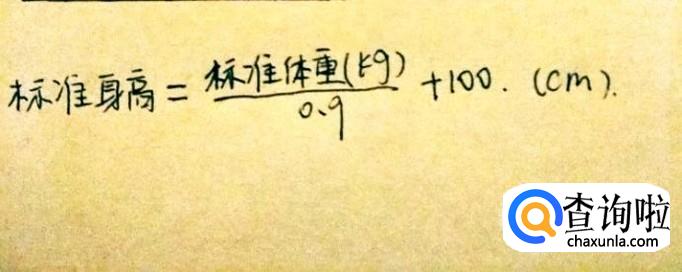 标准身高 = 标准体重(kg) / 0.9 +100. (cm).
查询啦
chaxunla.com